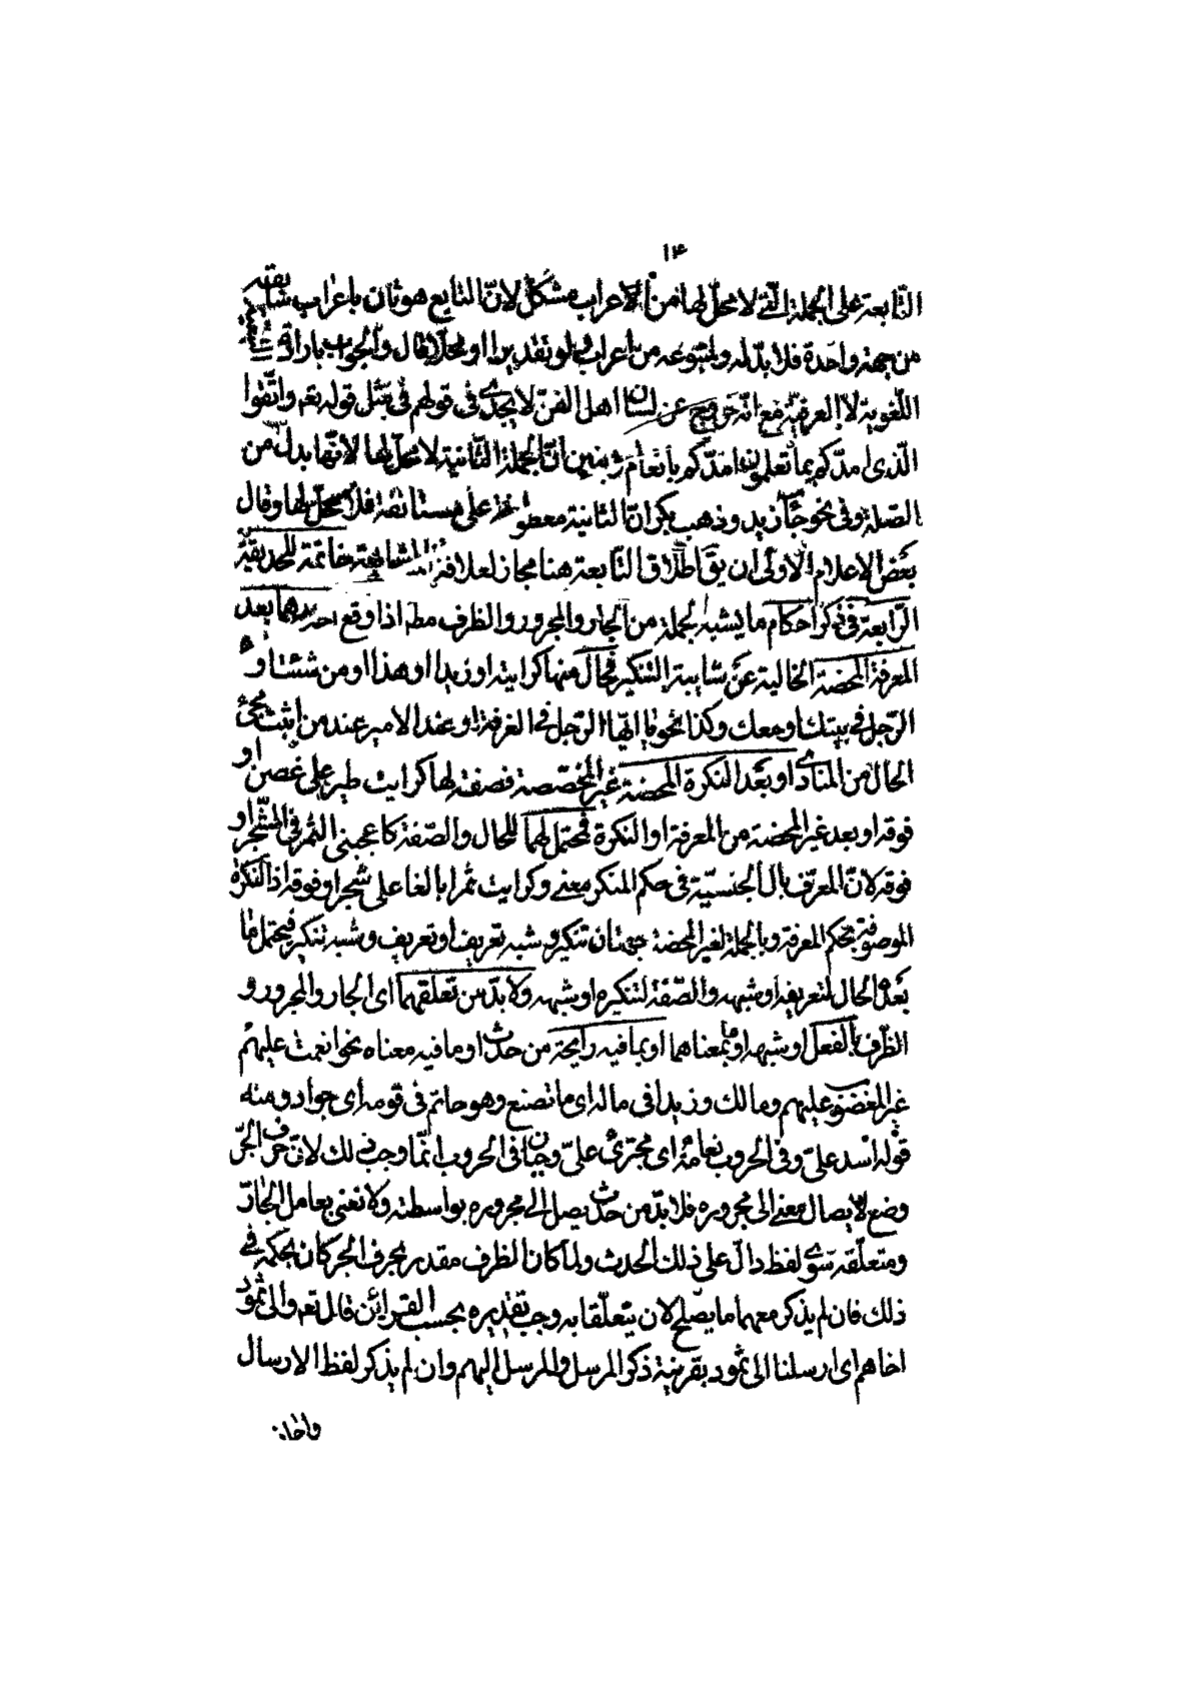 ١٤
التّابعة على الجملة الّتي لا محلّ لها من الاعراب مشكل لانّ التابع هو ثان باعراب سابقه
من جهة واحدة فلا بدّ له ولمتبوعه من اعراب ولو تقديرا او محلّا يقال والجواب بارادة
اللّغوية لا العرفيّة مع انّه خروج عن لسان اهل الفنّ لا يجدى فى قولهم فى مثل قوله تعه واتّقوا
الّذى امدّكم بما تعلمون امدّكم بانعام وبنين انّ الجملة الثّانية لا محلّ لها لانّها بدل من
الصّلة وفى نحو جاء زيد وذهب بكر انّ الثانية معطوفة على مستانفة فلا محلّ لها وقال
بعض الاعلام الاولى ان يق اطلاق التّابعة هنا مجاز لعلاقة المشابهة خاتمة للحديقة
الرّابعة فى ذكر احكام ما يشبه الجملة من الجار والمجرور والظرف مط اذا وقع احدهما بعد
المعرفة المحضة الخالية عن شايبة التنكير فحال منها كرايته او زيدا او هذا او من شئت او
الرّجل فى بيتك او معك وكذا نحو يا ايّها الرّجل فى الغرفة او عند الامير عند من اثبت مجئ
الحال من المنادى او بعد النكرة المحضة غير المخصّصة فصفة لها كرايت طير على غصن او
فوقه او بعد غير المحضة من المعرفة او النكرة فمحتمل لهما للحال والصّفة كاعجبنى الثمر فى الشّجر او
فوقه لانّ المعرّف بال الجنسيّة فى حكم المنكر معنى وكرايت ثمرا بالغا على شجر او فوقه اذ النكرة
الموصوفة بحكم المعرفة وبالجملة لغير المحضة جهتان تنكير وشبه تعريف او تعريف وشبه تنكير فيحتمل ما
بعده الحال لتعريفه او شبهه والصّفة لتنكيره او شبهه ولا بدّ من تعلقهما اى الجار والمجرور و
الظّرف بالفعل او شبهه او ما بمعناهما او بما فيه رايحة من حدث او ما فيه معناه نحو انعمت عليهم
غير المغضوب عليهم وما لك وزيدا فى ماله اى ما تصنع وهو حاتم فى قومه اى جواد ومنه
قوله اسد علىّ وفى الحروب نعامة اى مجترئ علىّ وجبان فى الحروب انّما وجب ذلك لانّ حرف الجرّ
وضع لايصال معنى الى مجروره فلا بدّ من حدث يصل الى مجروره بواسطته ولا نعنى بعامل الجارّ
ومتعلّقه سوى لفظ دالّ على ذلك الحدث ولما كان الظرف مقدر بحرف الجر كان بحكمه فى
ذلك فان لم يذكر معهما ما يصلح لان يتعلّقا به وجب تقديره بحسب القراين قال تعه والى ثمود
اخاهم اى ارسلنا الى ثمود بقرينة ذكر المرسل والمرسل اليهم وان لم يذكر لفظ الارسال